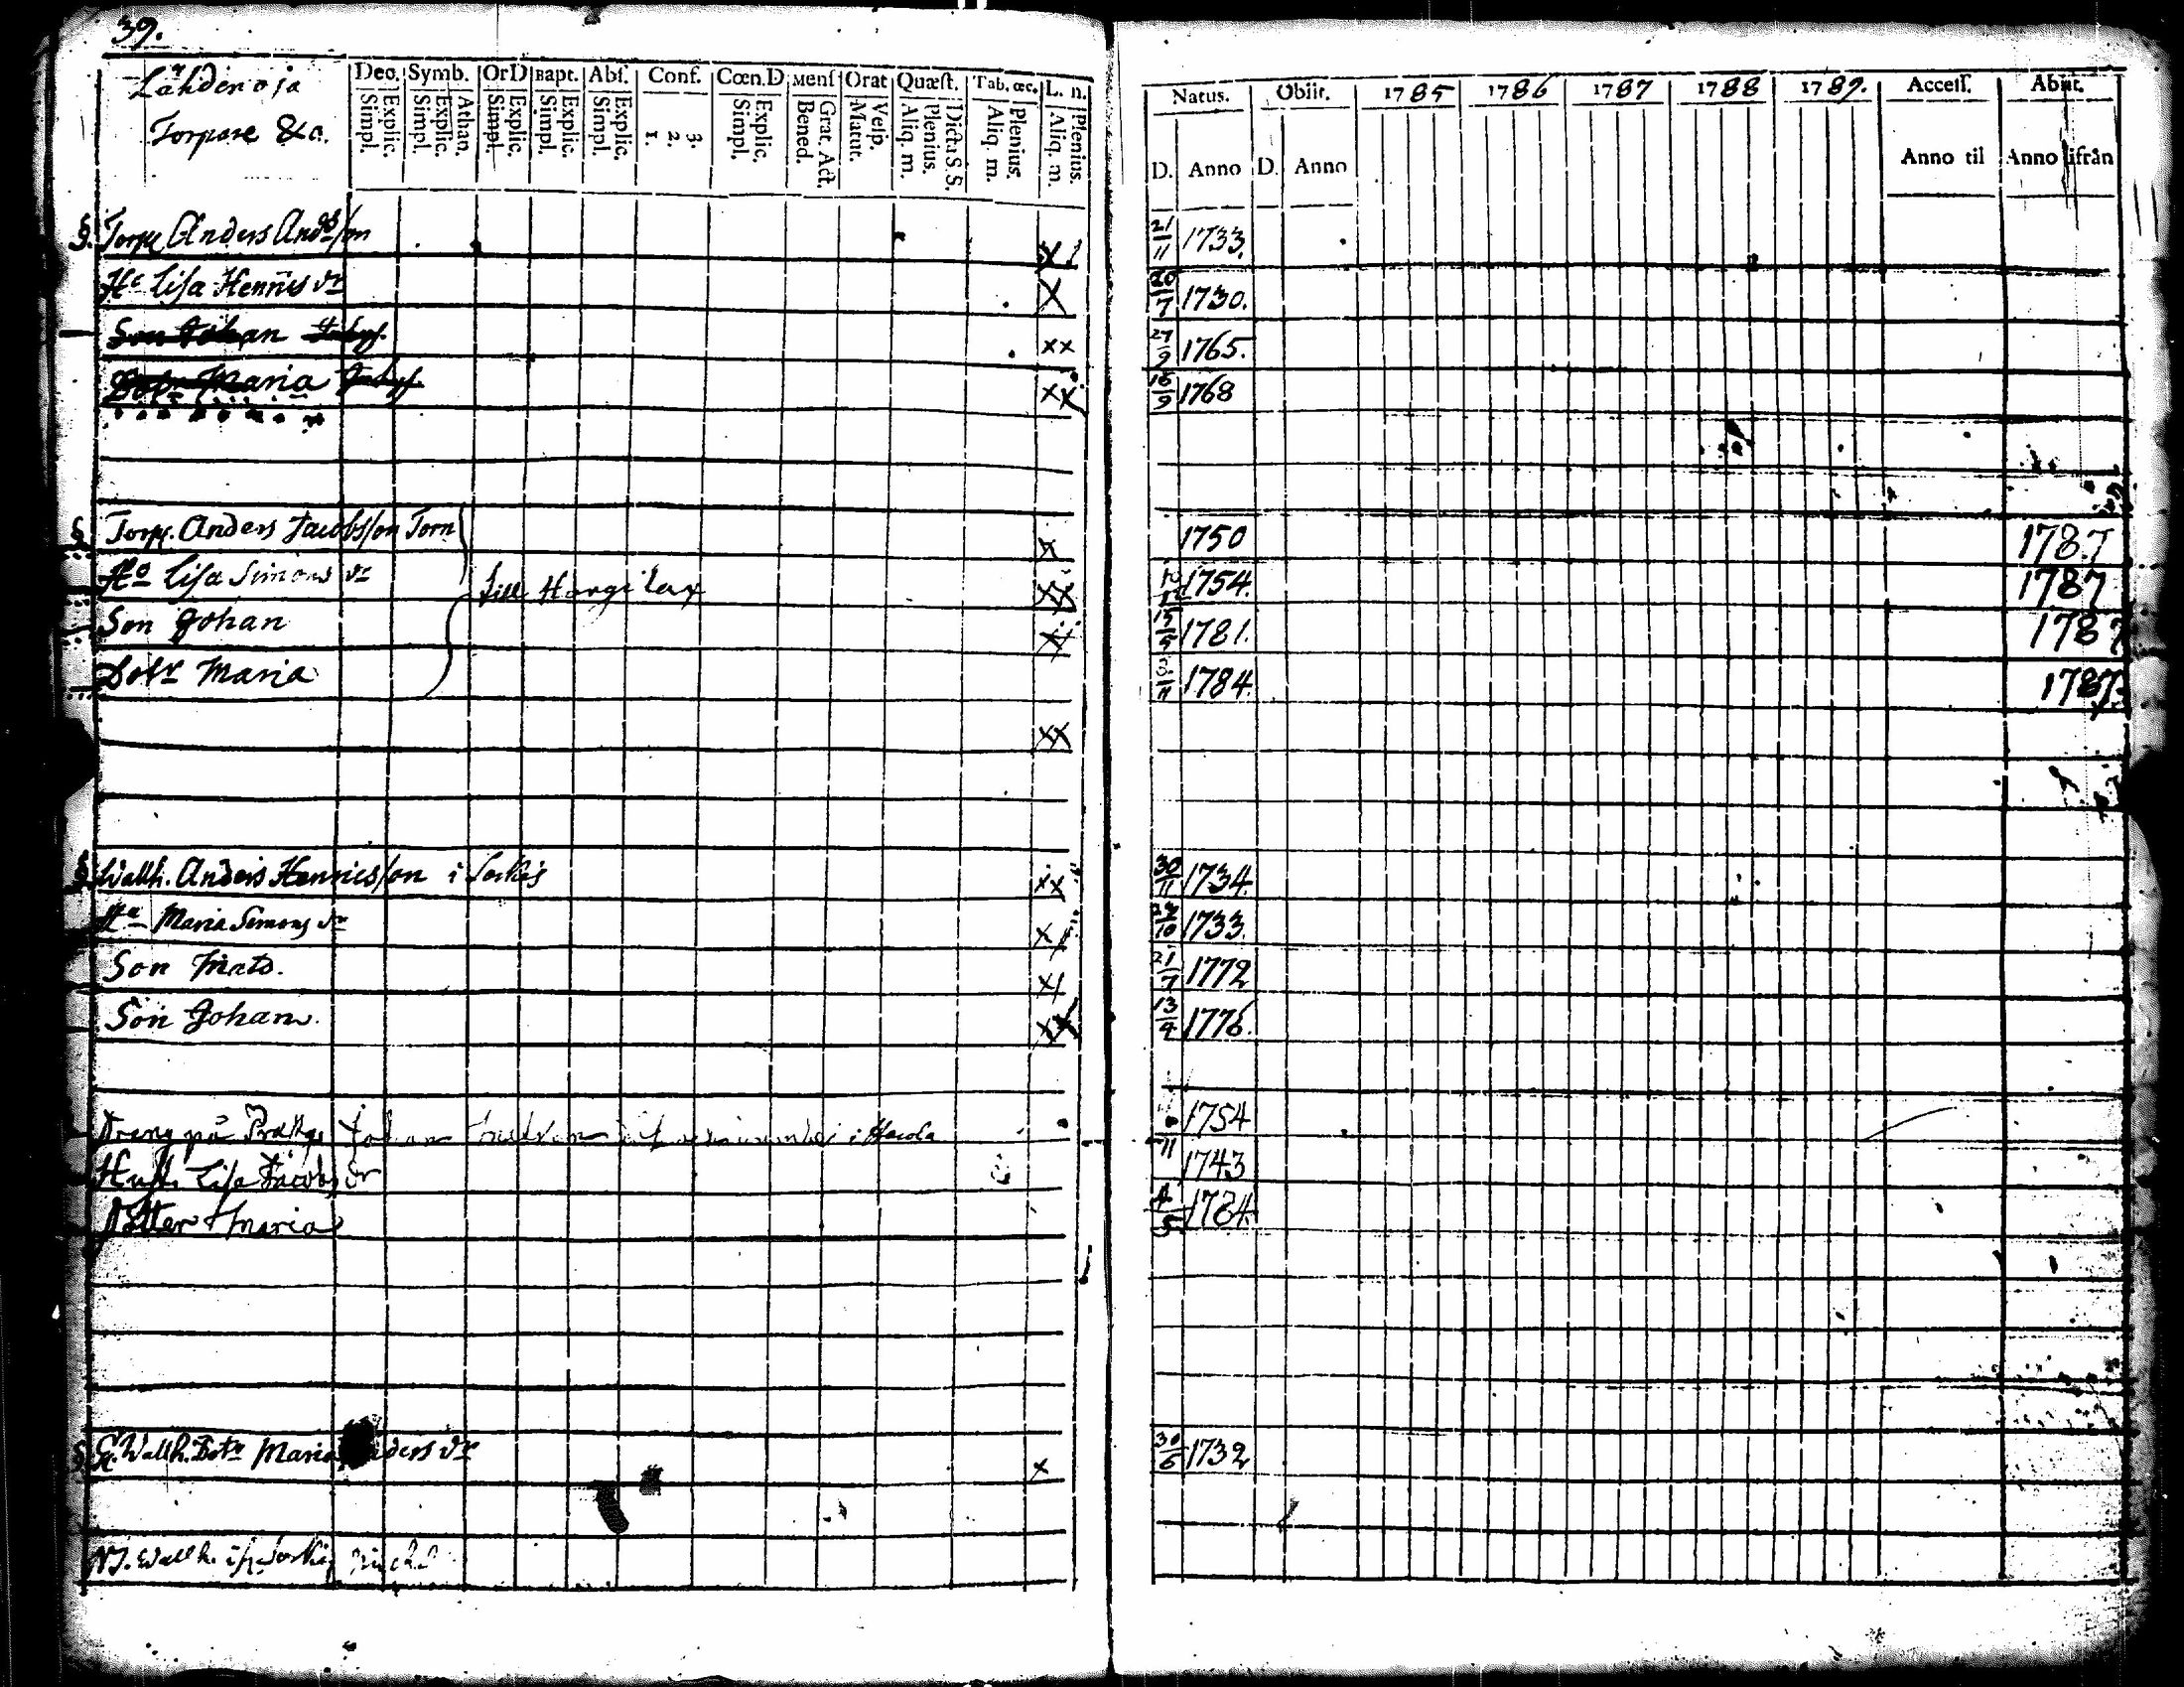 39.
Lähdenoja
Torpare &c.
Deo. Symb. OrD Bapt. Abs. Conf. Cœn.D Mens Orat Quæst. Tab. œc. L. n.
Simpl. Explic. Simpl. Explic. Athan. Simpl. Explic. Simpl. Explic. Simpl. Explic. 1. 2. 3. Simpl. Explic. Bened. Grat. Act. Matut. Vesp. Aliq. m. Plenius. Dicta S.S. Aliq. m. Plenius. Aliq. m. Plenius.
Natus. Obiit. 1785 1786 1787 1788 1789. Access. Abiit.
D. Anno D. Anno Anno til Anno ifrån
§. Torp. Anders Andsson 21/11 1733.
Ho Lisa Hennes dr 20/7 1730.
Son Johan 27/9 1765.
Dotr Maria 16/9 1768
§ Torp. Anders Jacobsson Torn 1750 1787
Ho Lisa Simons dr till 1754. 1787
Son Johan 15/5 1781. 1787
Dotr Maria 1784. 1787.
§ Wallh. Anders Henricsson i 30/11 1734.
Ha Maria Simons dr 1733.
Son Mats. 21/7 1772
Son Johan. 13/4 1776.
Dreng på Johan i 1754
Hust. Lisa Jacobs dr 1743
Dotter Maria 4/5 1784.
§. Wallh. Dotr Maria dr 30/6 1732
NJ. Wallh.